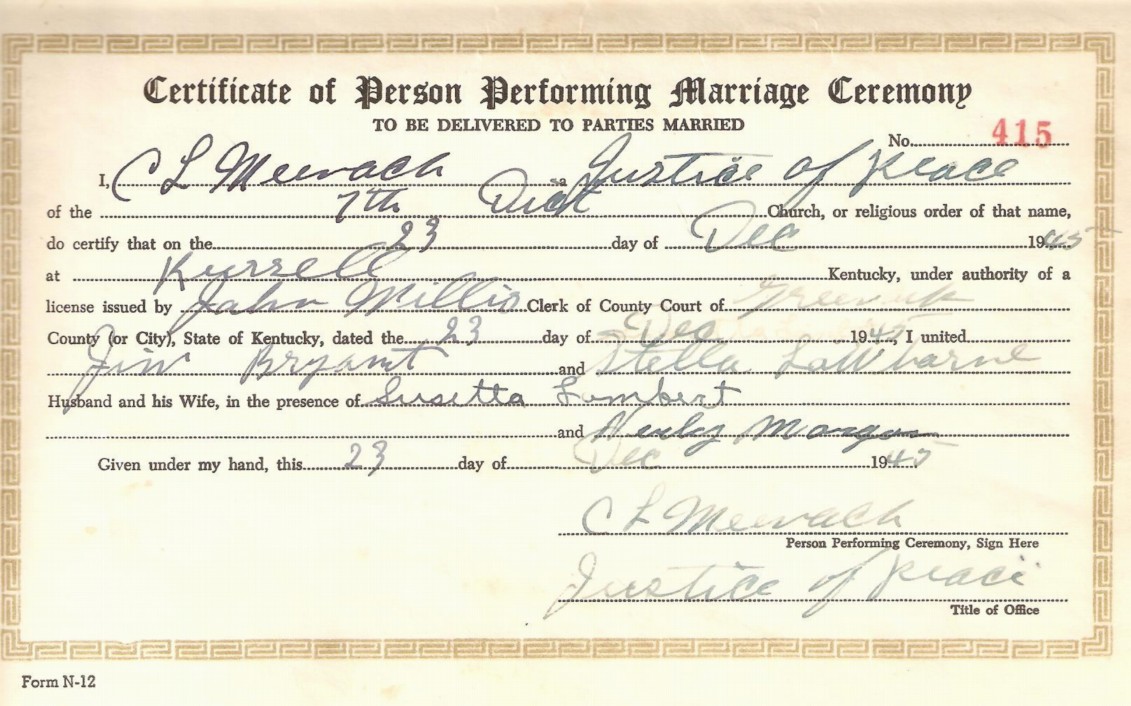 Certificate of Person Performing Marriage Ceremony
TO BE DELIVERED TO PARTIES MARRIED
No. 415
I, C L Meevach a Justice of Peace
of the 7th Dist Church, or religious order of that name,
do certify that on the 23 day of Dec 1945
at Russell Kentucky, under authority of a
license issued by John Willis Clerk of County Court of Greenup
County (or City), State of Kentucky, dated the 23 day of Dec 1945, I united
Jim Bryant and Stella
Husband and his Wife, in the presence of Susetta Lambert
and Morgan
Given under my hand, this 23 day of Dec 1945
C L Meevach
Person Performing Ceremony, Sign Here
Justice of Peace
Title of Office
Form N-12